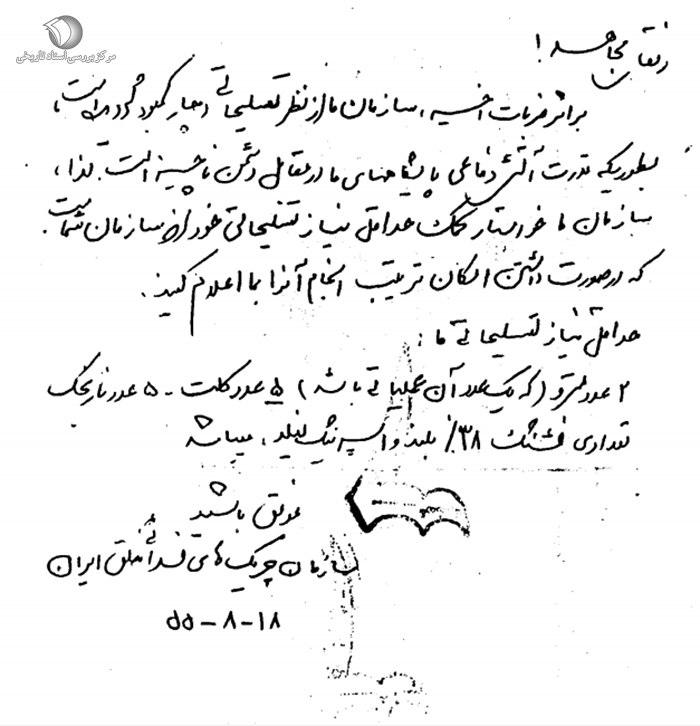 مرکز بررسی اسناد تاریخی
رفقای مجاهد!
براثر ضربات اخیر، سازمان ما از نظر تسلیحاتی دچار کمبود گردیده است،
بطوریکه قدرت آتش دفاعی پایگاههای ما در مقابل دشمن ناچیز است. لذا،
سازمان ما خواستار کمک حداقل نیاز تسلیحاتی خود از سازمان شماست.
که در صورت داشتن امکان ترتیب انجام آنرا بما اعلام کنید.
حداقل نیاز تسلیحاتی ما:
۲ عدد (که یک عدد آن عملیاتی باشد) ۵ عدد کلت - ۵ عدد نارنجک
تعدادی فشنگ ۳۸٪ بلند و اسپرینگ فیلد، میباشد
موفق باشید
سازمان چریک‌های فدائی خلق ایران
۵۵-۸-۱۸